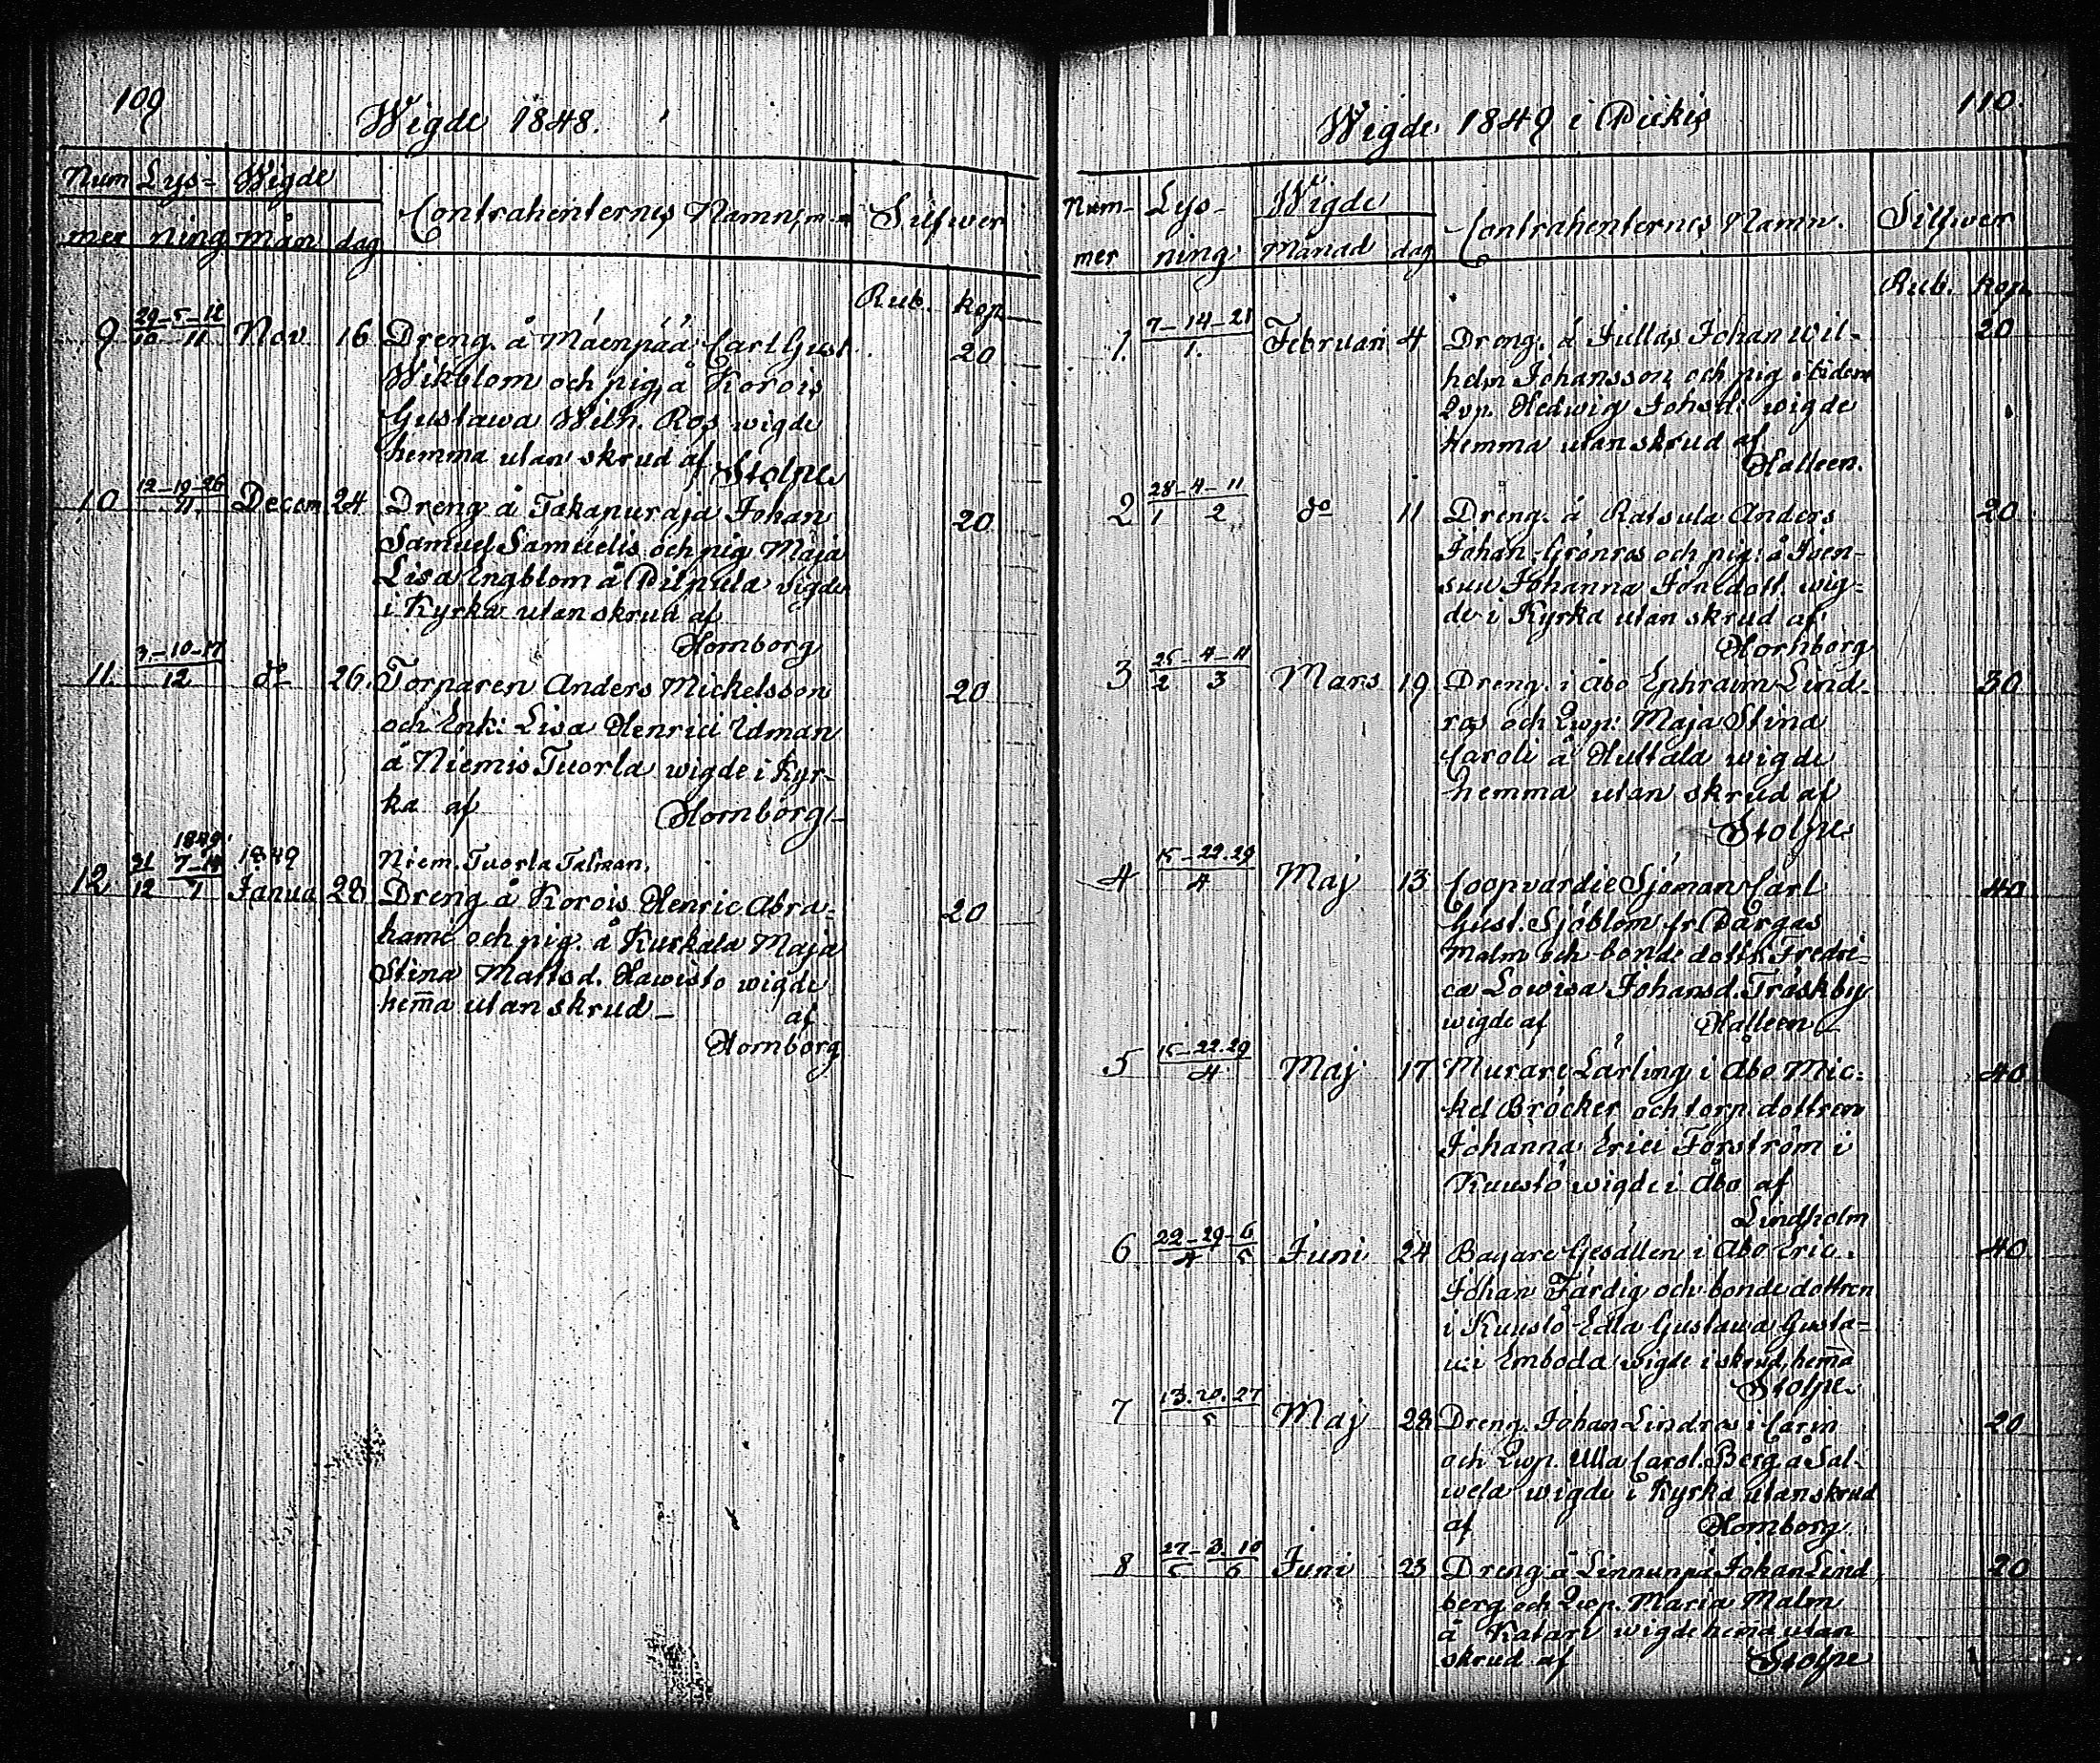 109
Wigde 1848.
Num Lys- Wigde
Contrahenternes Namn, m. m Silfwer
mer ning Mån dag
Rub. kop
29-5-12
9 10 11 Nov 16 Dreng. å Mäenpää Carl Gust 20
Wikblom och pig. å Korois
Gustawa Wilh. Ros wigde
hemma utan skrud af Stolpe
12-19-26
10 11. Decem 24 Dreng å Takapuraja Johan 20
Samuel Samuelis och pig Maja
Lisa Engblom å Pilpula wigde
i Kyrka utan skrud af
Hornborg
3-10-17
11. 12 do 26. Torparen Anders Mickelsson 20
och Enk: Lisa Henrici Udman
å Niemis Tuorla wigde i Kyr-
ka af Hornborg
1849
31 7-14 1849 Niem. Tuorla Talman.
12 12 1 Janua 28 Dreng å Korois Henric Abra- 20
hami och pig. å Kurkala Maja
Stina Mattsd. Hawisto wigde
hem̄a utan skrud - af
Hornborg
110.
Wigde 1849 i Pickis
Num- Lys- Wigde
Contrahenternes Namn. Silfwer
mer ning Månad dag
Rub. kop.
7-14-21
1. 1. Februari 4 Dreng. å Jullas Johan Wil- 20
helm Johansson och pig ibidem
Qvp. Hedwig Johsd: wigde
hemma utan skrud af
Halleen.
28-4-11
2 1 2 do 11 Dreng. å Raisula Anders 20
Johan Grönros och pig: å Joen-
suu Johanna Joh:dott. wig-
de i Kyrka utan skrud af
Hornborg
25-4-11
3 2 3 Mars 19 Dreng. i Åbo Ephraim Lind- 30
ros och Qwp: Maja Stina
Caroli å Huttala wigde
hemma utan skrud af
Stolpe
15-22.29
4 4 Maj 13 Coopvardie Sjöman Carl 40
Gust. Sjöblom fr. Pargas
Malm och bonde dottr. Fredri-
ca Lowisa Johansd. Träskby
wigde af Halleen
15-22.29
5 4 Maj 17 Murare Lärling i Åbo Mic- 40
kel Bröcker och torp dottren
Johanna Erici Forström i
Kuustö wigde i Åbo af
Lindholm
22-29-6
6 4 5 Juni 24 Bagare Gesällen i Åbo Eric 40
Johan Färdig och bonde dottren
i Kuustö Edla Gustawa Gusta-
wi Emboda wigde i skrud hem̄a
Stolpe
13.20.27
7 5 Maj 28 Dreng. Johan Lindros i Carin 20
och Qwp. Ulla Carol. Berg å Sal-
wela wigde i Kyrka utan skrud
af Hornborg
27-3.10
8 5 6 Juni 23 Dreng å Linnunpä Johan Lind 20
berg och Qwp. Maria Malm
å Katari wigde hem̄a utan
skrud af Stolpe